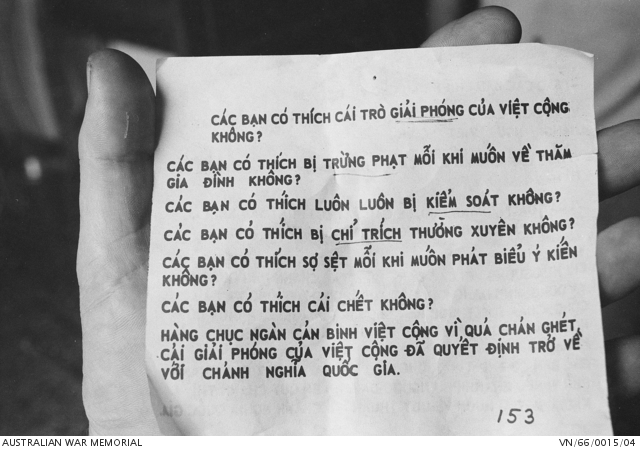 CÁC BẠN CÓ THÍCH CÁI TRÒ GIẢI PHÓNG CỦA VIỆT CỘNG
KHÔNG?
CÁC BẠN CÓ THÍCH BỊ TRỪNG PHẠT MỖI KHI MUỐN VỀ THĂM
GIA ĐÌNH KHÔNG?
CÁC BẠN CÓ THÍCH LUÔN LUÔN BỊ KIỂM SOÁT KHÔNG?
CÁC BẠN CÓ THÍCH BỊ CHỈ TRÍCH THƯỜNG XUYÊN KHÔNG?
CÁC BẠN CÓ THÍCH SỢ SỆT MỖI KHI MUỐN PHÁT BIỂU Ý KIẾN
KHÔNG?
CÁC BẠN CÓ THÍCH CÁI CHẾT KHÔNG?
HÀNG CHỤC NGÀN CÁN BINH VIỆT CỘNG VÌ QUÁ CHÁN GHÉT
CÁI GIẢI PHÓNG CỦA VIỆT CỘNG ĐÃ QUYẾT ĐỊNH TRỞ VỀ
VỚI CHÁNH NGHĨA QUỐC GIA.
153
AUSTRALIAN WAR MEMORIAL VN/66/0015/04